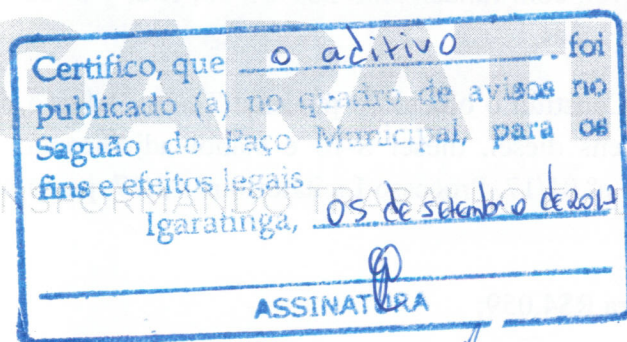 GARATI
Certifico, que o aditivo . foi
publicado (a) no quadro de avisos no
Saguão do Paço Municipal, para os
fins e efeitos legais
NSFORMANDO TRABALHO
Igaratinga, 05 de setembro de 2017
ASSINATURA